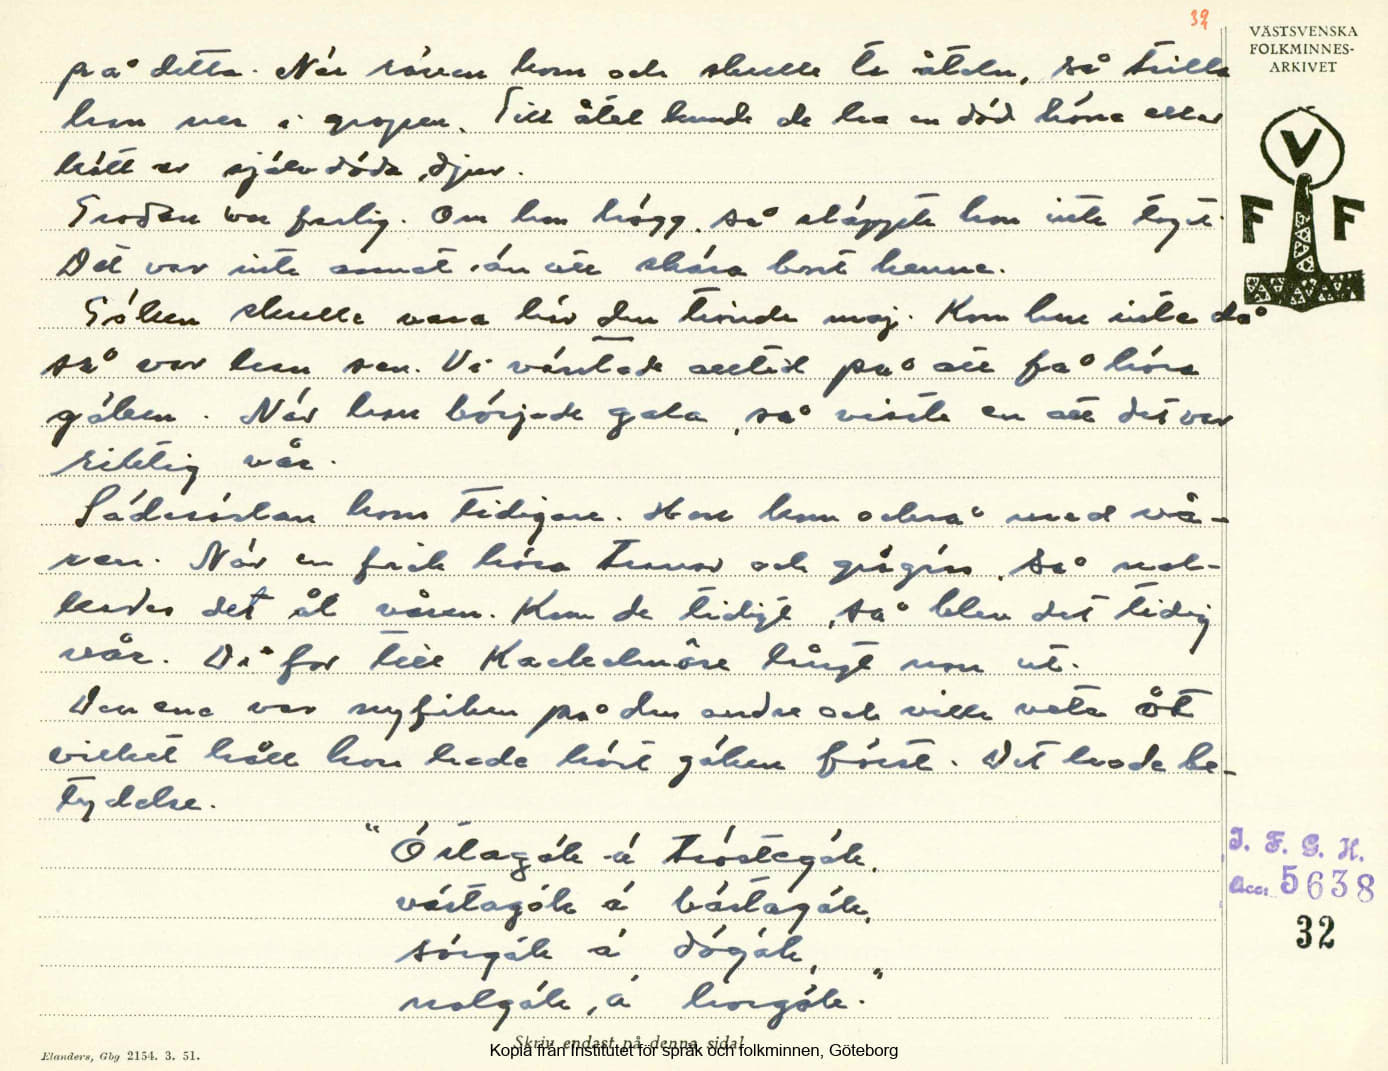 39
VÄSTSVENSKA
FOLKMINNES-
ARKIVET
V
F F
på detta. När räven kom och skulle ta åteln, så trilla
han ner i gropen. Till åtel kunde de ha en död höna eller
kött av självdöda djur.
Groden var farlig. Om han högg, så släppte han inte taget.
Det var inte annat än att skära bort henne.
Göken skulle vara här den tionde maj. Kom han inte då
så var han sen. Vi väntade alltid på att få höra
göken. När han började gala, så visste en att det var
riktig vår.
Sädesärlan kom tidigare. Hon kom också med vå-
ren. När en fick höra tranor och grågäss, så nal-
kades det åt våren. Kom de tidigt, så blev det tidig
vår. Di for till Kackelmåse långt norr ut.
Den ene var nyfiken på den andre och ville veta åt
vilket håll han hade hört göken först. Det hade be-
tydelse.
"Östagök ä tröstegök,
västagök ä bästagök,
sörgök ä dögök,
nolgök, ä horgök."
I. F. G. H.
Acc: 5638
32
Skriv endast på denna sida!
Elanders, Gbg 2154. 3. 51.
Kopia från Institutet för språk och folkminnen, Göteborg